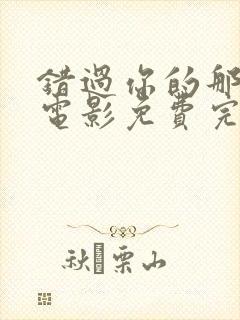 錯過你的那
電影免費完
秋栗山